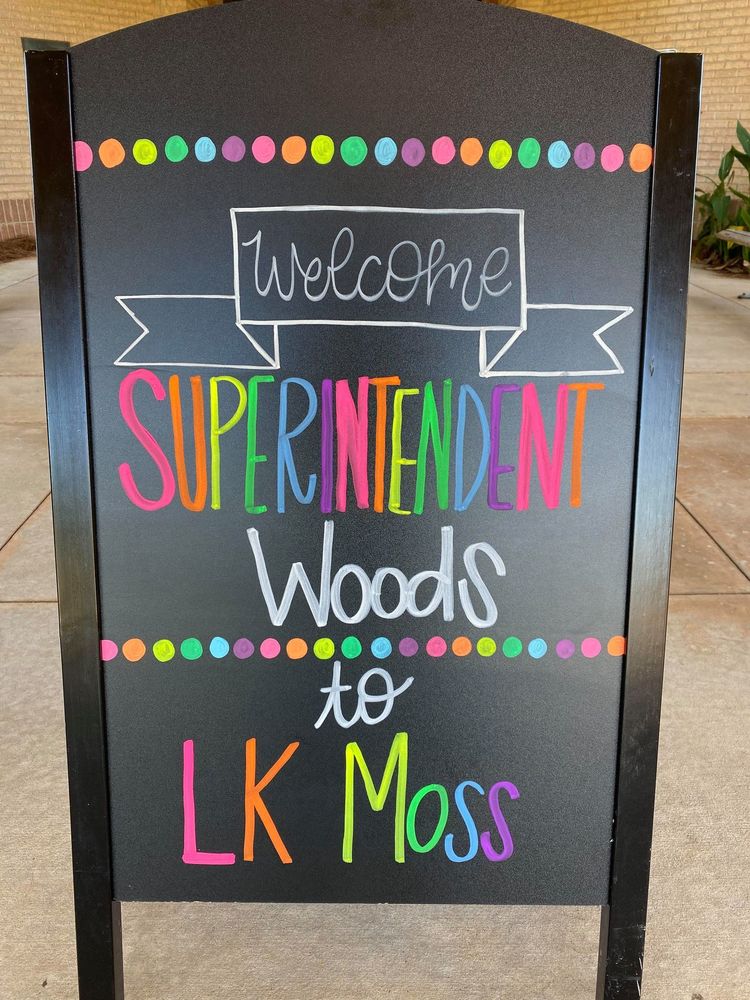 Welcome
SUPERINTENDENT
Woods
to
LK Moss